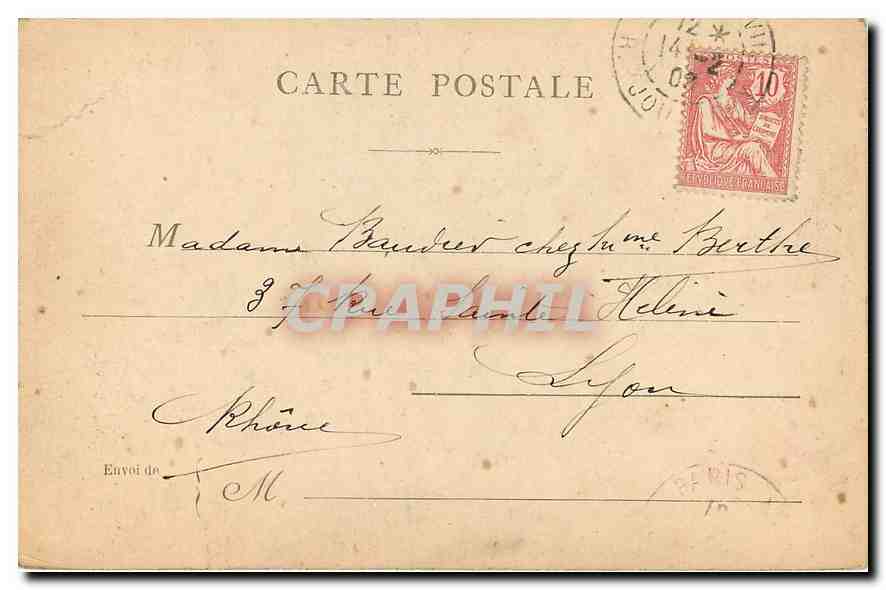 12 *
14 -2
02
R. JOU
POSTES
10
REPUBLIQUE FRANCAISE
CARTE POSTALE
Madame Baudier chez Mme Berthe
37 Rue Sainte Hélène
CPAPHIL
Lyon
Rhône
Envoi de
M
PARIS